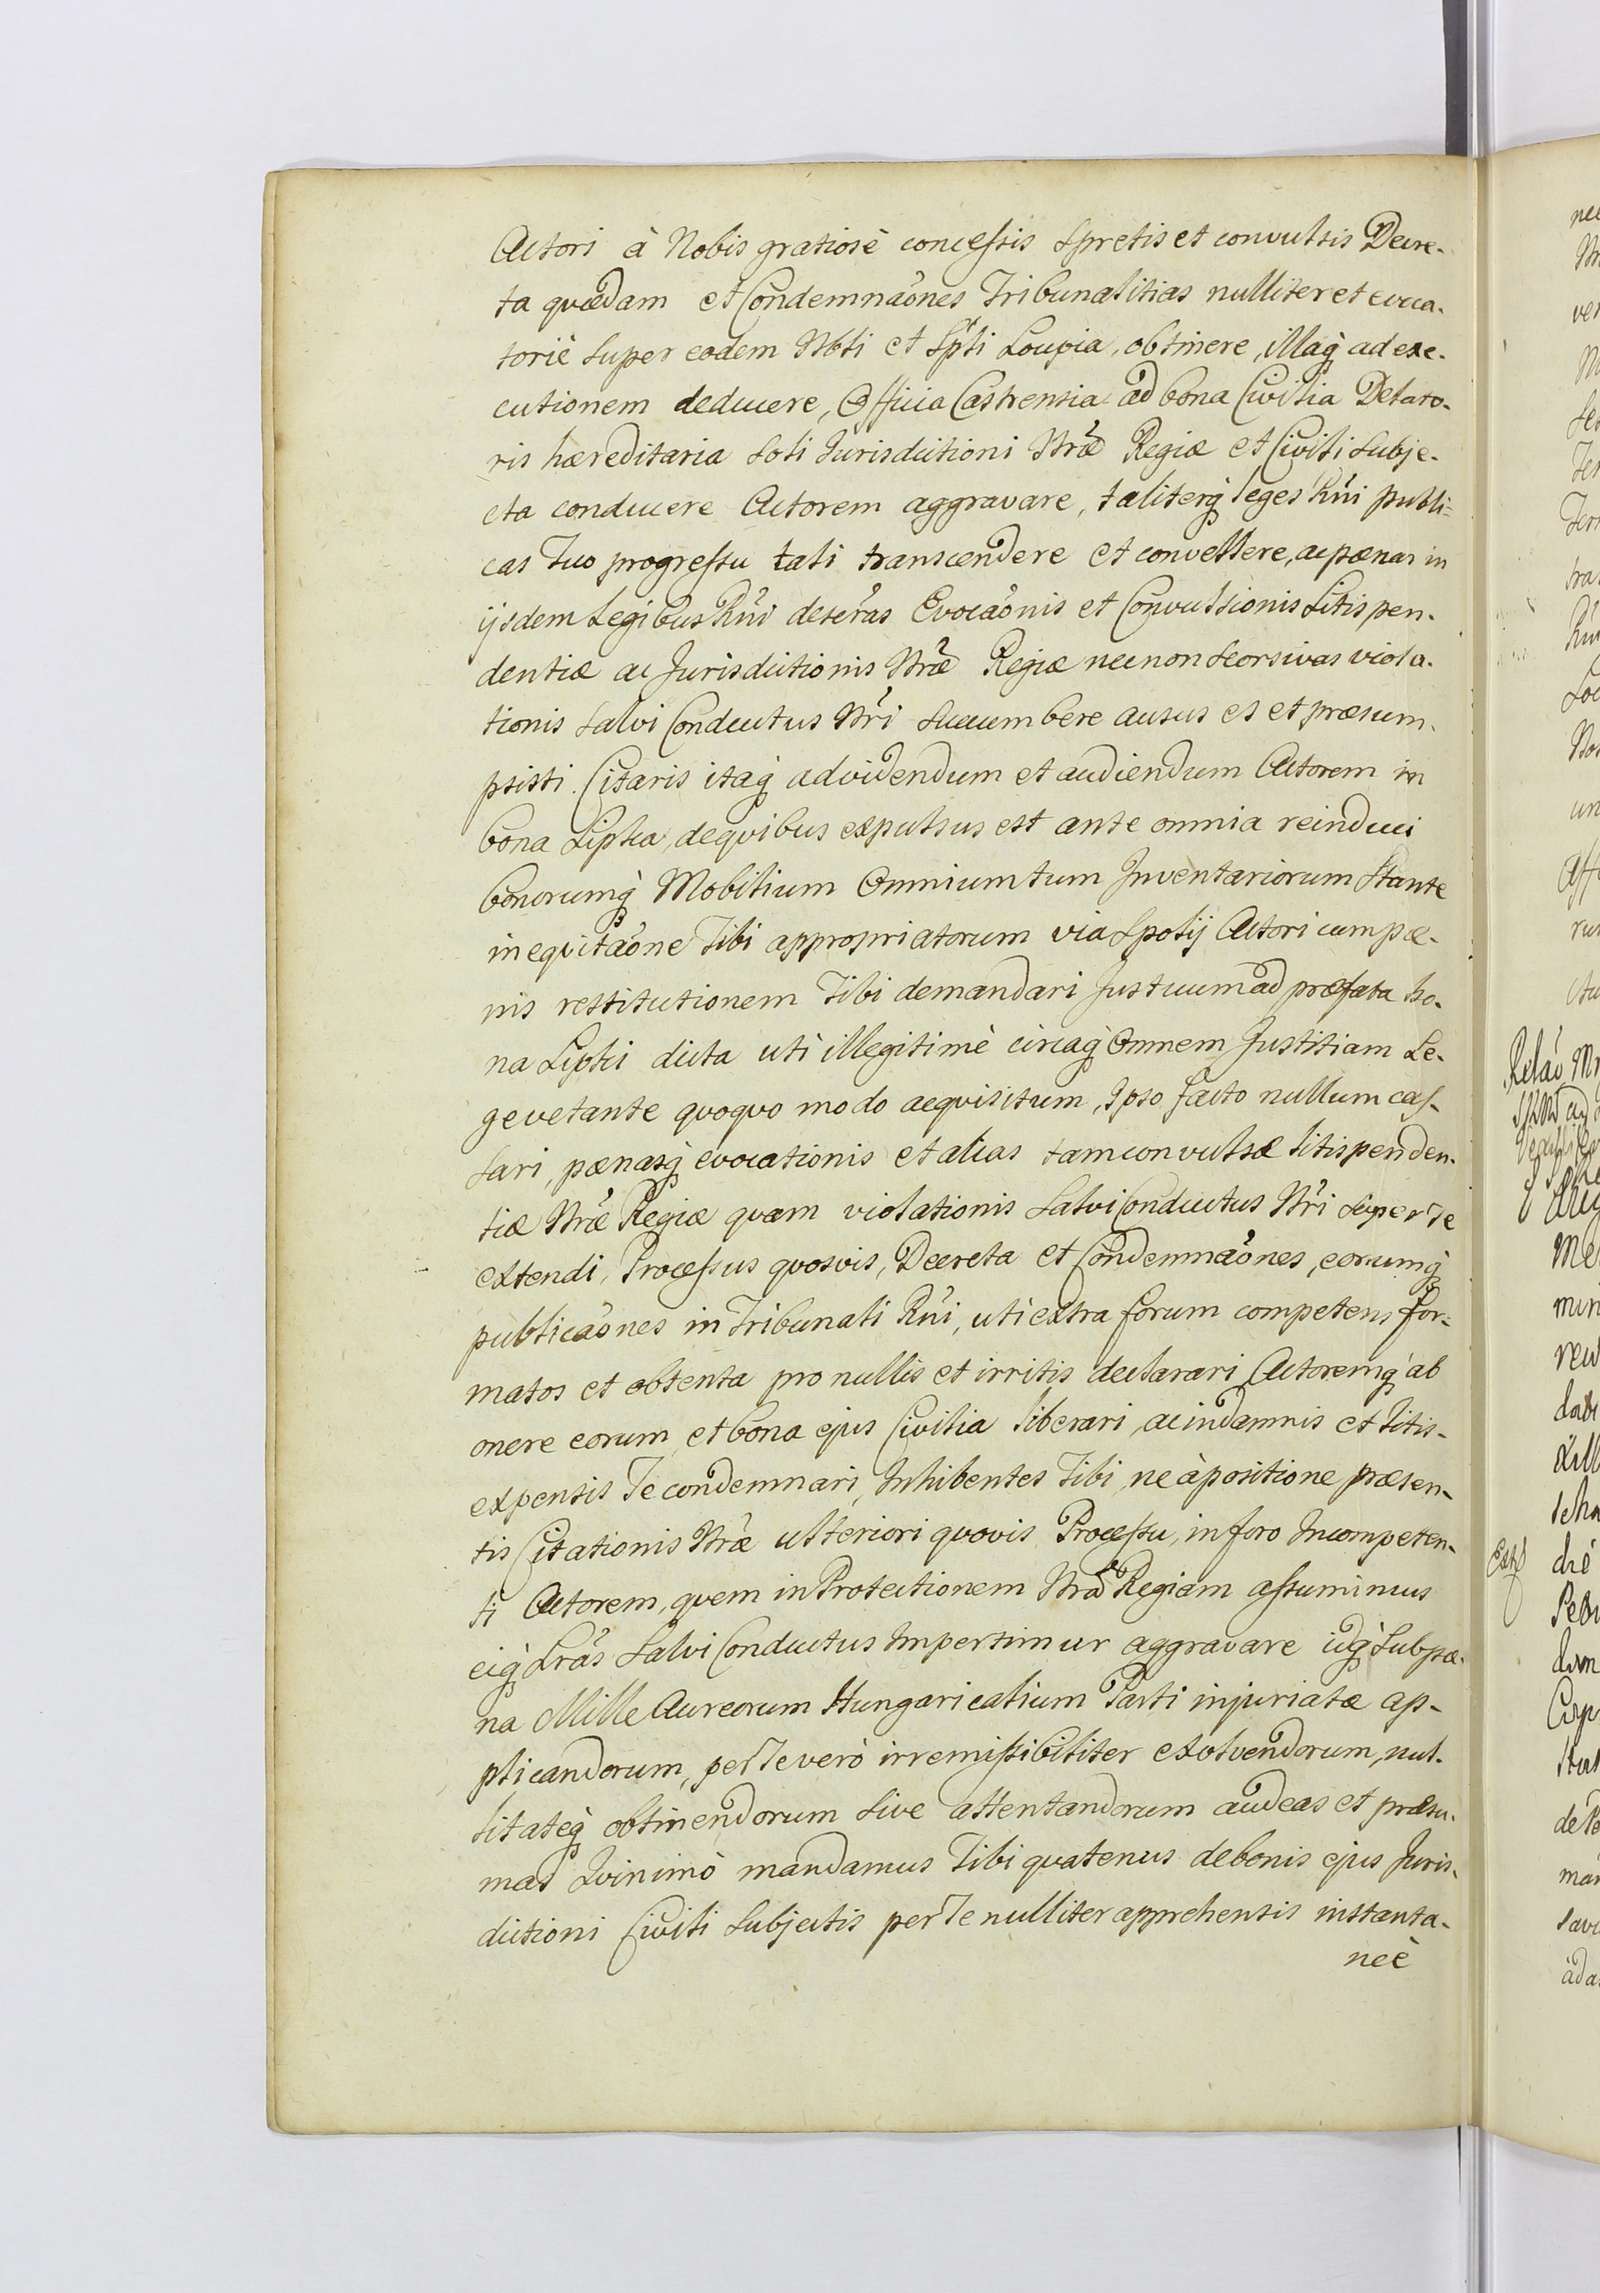 Actori à Nobis gratiosè concessis Spretis et convulsis Decre-
ta quædam et Condemnaões Tribunalitias nulliter et evoca-
toriè Super eodem Nbli et Spli Loupia, obtinere, illaq; ad exe-
cutionem deducere, Officia Castrensia ad bona Civilia Delato-
ris hæreditaria Soli Jurisdictioni Nræ Regiæ et Civili Subje-
cta conducere Actorem aggravare, taliterq; leges Rni publi=
cas Tuo progressu tali transcendere et convellere, ac pænas in
ijsdem Legibus Rni deseras Evocaõnis et Convulsionis Litispen-
dentiæ ac Jurisdictionis Nræ Regiæ necnon Seorsivas viola-
tionis Salvi Conductus Nri Succumbere ausus es et præsum-
psisti. Citaris itaq; ad videndum et audiendum Actorem in
bona Lipka, de quibus expulsus est ante omnia reinduci
bonorumq; Mobilium Omnium tum Inventariorum Stante
inequitaõne Tibi appropriatorum via Spolij Actori cum pæ-
nis restitutionem Tibi demandari Jus tuum ad præfata bo-
na Lipki dicta utì illegitimè circaq; Omnem Justitiam Le-
ge vetante quoquo modo acquisitum, Ipso facto nullum cas-
sari, pænasq; evocationis et alias tam convulsæ litispenden-
tiæ Nræ Regiæ quam violationis Salvi Conductus Nri Super Te
extendi, Processus quosvis, Decreta et Condemnaõnes, eorumq;
publicaõnes in Tribunali Rni, utì extra forum competens for-
matos et obtenta pro nullis et irritis declarari Actoremq; ab
onere eorum et bona ejus Civilia liberari, ac in damnis et litis-
expensis Te condemnari, Inhibentes Tibi, ne à positione præsen-
tis Citationis Nræ ulteriori quovis Processu, in foro Incompeten-
ti Actorem, quem in Protectionem Nram Regiam assumimus
eiq; Lras Salvi Conductus Impertimur aggravare idq; Sub pæ-
na Mille Aureorum Hungaricalium Parti injuriatæ ap-
plicandorum, per Te verò irremissibiliter exolvendorum, nul-
litateq; obtinendorum Sive attentandorum audeas et præsu-
mas Quinimò mandamus Tibi quatenus de bonis ejus Juris-
dictioni Civili Subjectis per Te nulliter apprehensis instanta-
neè